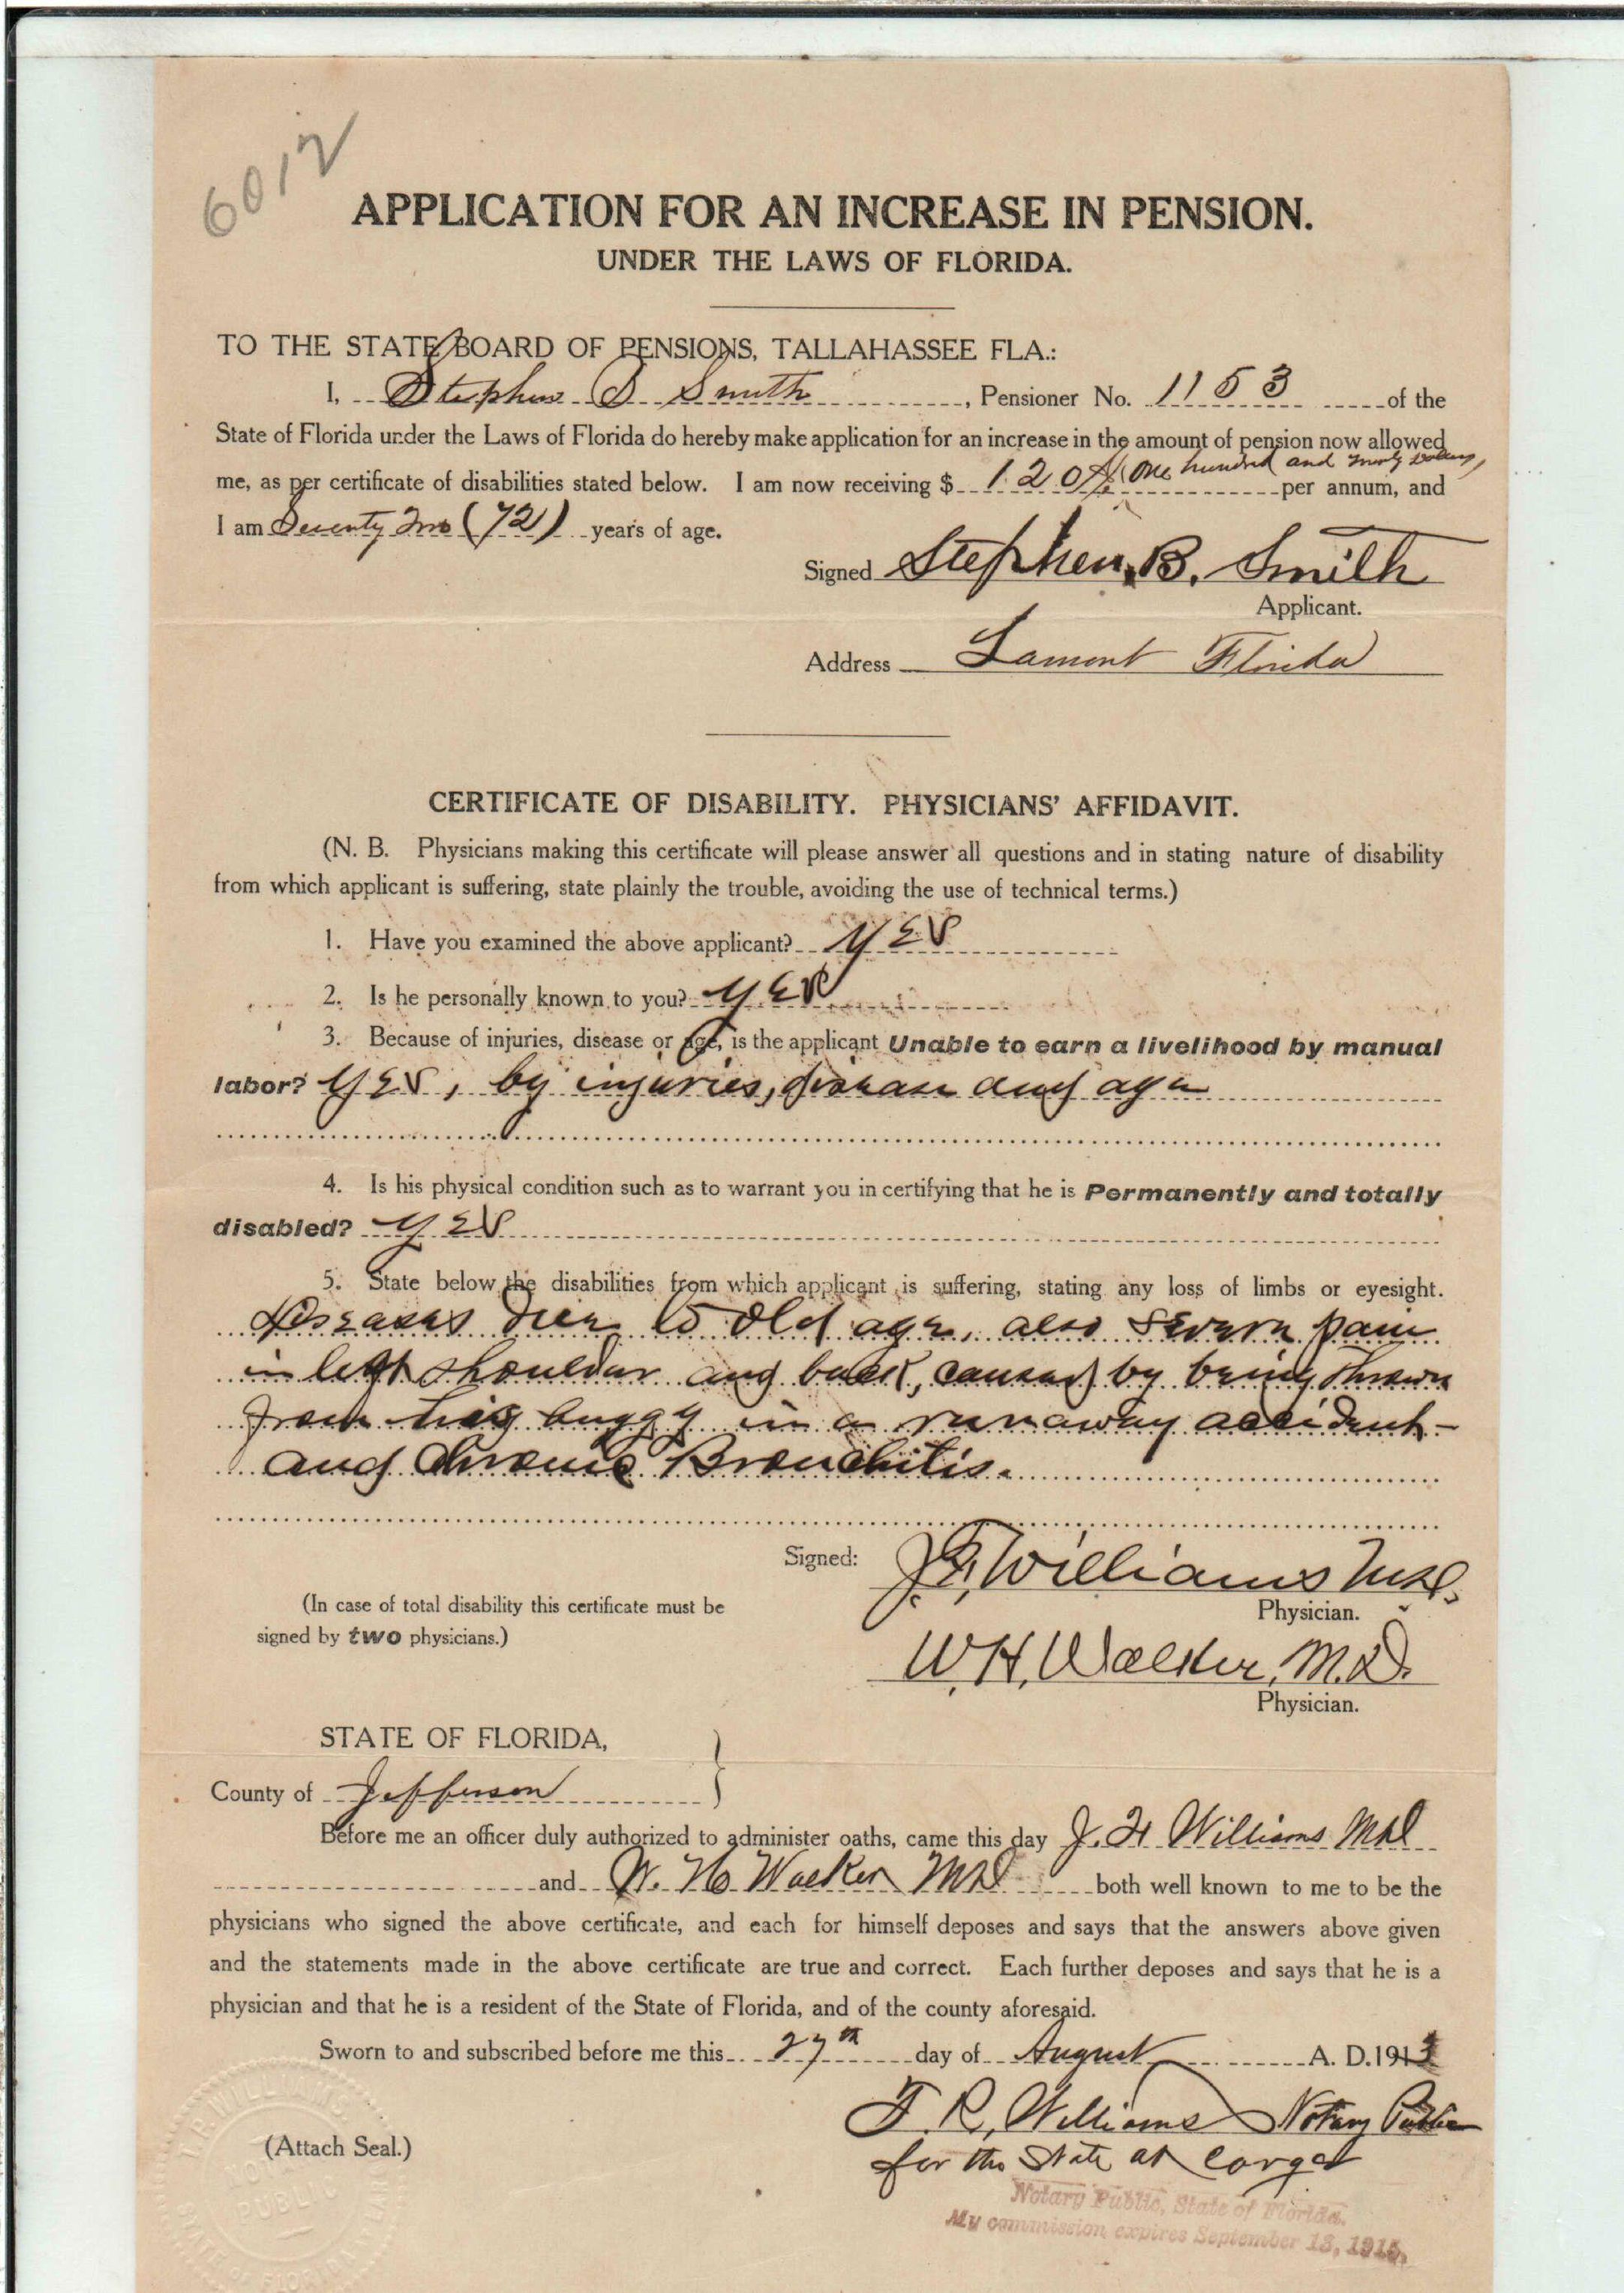 6012
APPLICATION FOR AN INCREASE IN PENSION.
UNDER THE LAWS OF FLORIDA.
TO THE STATE BOARD OF PENSIONS, TALLAHASSEE FLA.:
I, Stephen B Smith, Pensioner No. 1153 of the
State of Florida under the Laws of Florida do hereby make application for an increase in the amount of pension now allowed
me, as per certificate of disabilities stated below. I am now receiving $ 120 One hundred and Twenty Dollars, per annum, and
I am Seventy Two (72) years of age.
Signed Stephen, B. Smith
Applicant.
Address Lamont Florida
CERTIFICATE OF DISABILITY. PHYSICIANS' AFFIDAVIT.
(N. B. Physicians making this certificate will please answer all questions and in stating nature of disability
from which applicant is suffering, state plainly the trouble, avoiding the use of technical terms.)
1. Have you examined the above applicant? Yes
2. Is he personally known to you? Yes
3. Because of injuries, disease or age, is the applicant Unable to earn a livelihood by manual
labor? Yes, by injuries, disease and age
4. Is his physical condition such as to warrant you in certifying that he is Permanently and totally
disabled? Yes
5. State below the disabilities from which applicant is suffering, stating any loss of limbs or eyesight.
Diseases due to old age, also severe pain
in left shoulder and back, caused by being thrown
from his buggy in a runaway accident -
and Chronic Bronchitis.
Signed: J. F. Williams M.D.
Physician.
(In case of total disability this certificate must be
signed by two physicians.)
W. H. Walker, M.D.
Physician.
STATE OF FLORIDA,
County of Jefferson
Before me an officer duly authorized to administer oaths, came this day J. F. Williams MD
and W. H Walker MD both well known to me to be the
physicians who signed the above certificate, and each for himself deposes and says that the answers above given
and the statements made in the above certificate are true and correct. Each further deposes and says that he is a
physician and that he is a resident of the State of Florida, and of the county aforesaid.
Sworn to and subscribed before me this 27th day of August A. D. 1913
T. R. Williams Notary Public
for the State at Large
(Attach Seal.)
NOTARY PUBLIC
STATE OF FLORIDA
Notary Public, State of Florida.
My commission expires September 13, 1915.